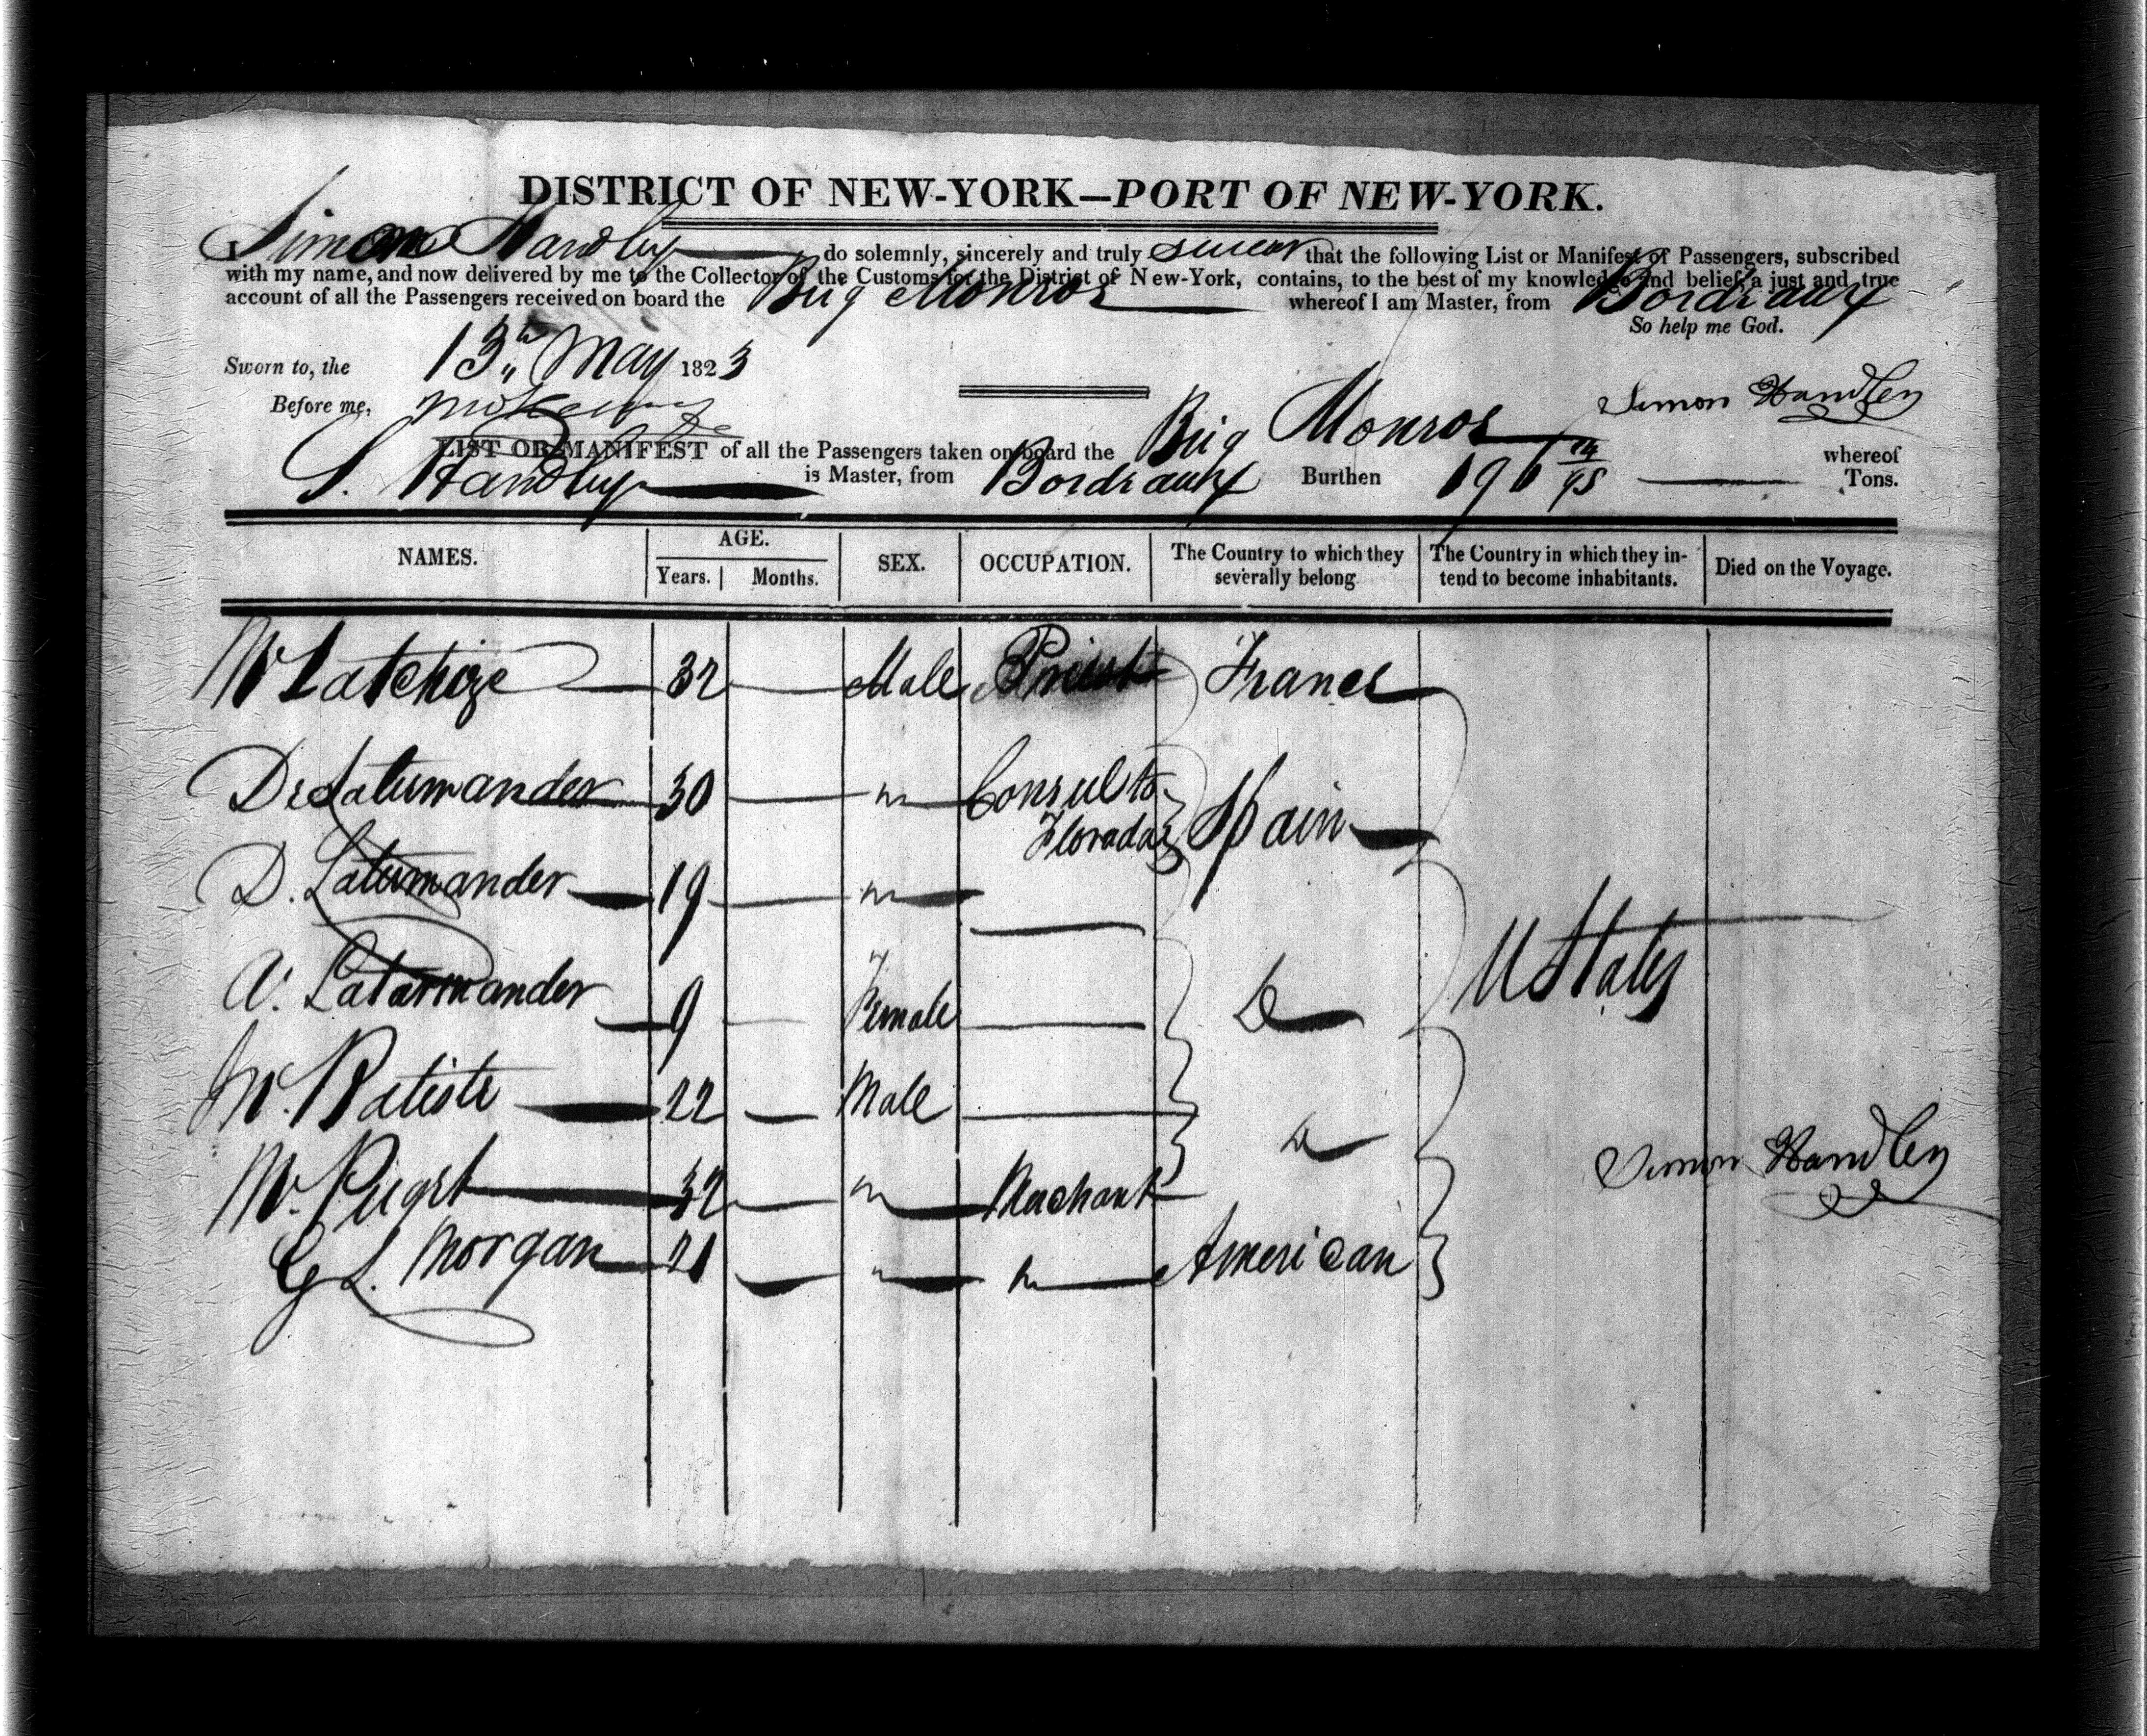 DISTRICT OF NEW-YORK—PORT OF NEW-YORK.
I Simon Handley do solemnly, sincerely and truly swear that the following List or Manifest of Passengers, subscribed
with my name, and now delivered by me to the Collector of the Customs for the District of New-York, contains, to the best of my knowledge and belief, a just and true
account of all the Passengers received on board the Brig Monroe whereof I am Master, from Bordeaux
So help me God.
Sworn to, the 13th May 1823
Before me,
Simon Handley
LIST OR MANIFEST of all the Passengers taken on board the Brig Monroe whereof
S. Handley is Master, from Bordeaux Burthen 191 14/95 Tons.
NAMES. AGE. Years. Months. SEX. OCCUPATION. The Country to which they severally belong The Country in which they intend to become inhabitants. Died on the Voyage.
M Latchize 32 Male Priest France
De Laturmander 30 " Consul to Floradas Spain
D. Laturmander 19 "
A. Latarmander 9 Female Do
M. Batiste 22 Male Do
M. Puget 32 " Merchant
G L. Morgan 21 " " American
U States
Simon Handley